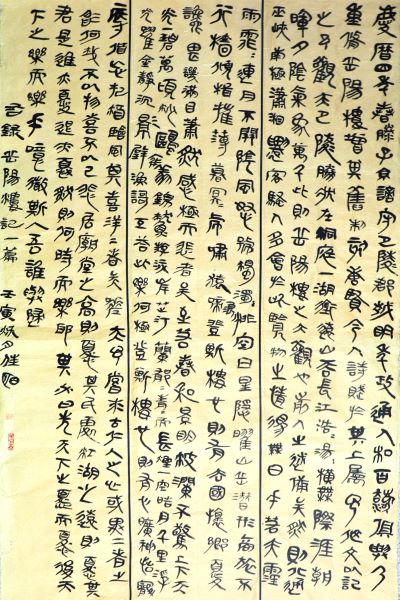 慶曆四年春滕子京謫守巴陵郡越明年政通人和百廢俱興乃
重修岳陽樓增其舊制刻唐賢今人詩賦於其上屬予作文以記
之予觀夫巴陵勝狀在洞庭一湖銜遠山吞長江浩浩湯湯橫無際涯朝
暉夕陰氣象萬千此則岳陽樓之大觀也前人之述備矣然則北通
巫峽南極瀟湘遷客騷人多會於此覽物之情得無異乎若夫霪
雨霏霏連月不開陰風怒號濁浪排空日星隱曜山岳潛形商旅不
行檣傾楫摧薄暮冥冥虎嘯猿啼登斯樓也則有去國懷鄉憂
讒畏譏滿目蕭然感極而悲者矣至若春和景明波瀾不驚上下天
光碧萬頃沙鷗集錦鱗游泳岸芷汀蘭郁郁青青而長煙一空皓月千里浮
光躍金靜沉影璧漁歌互答此樂何極登斯樓也則有心曠神怡寵
辱皆忘把酒臨風其喜洋洋者矣嗟夫予嘗求古仁人之心或異二者之
為何哉不以物喜不以己悲居廟堂之高則憂其民處江湖之遠則憂其
君是進亦憂退亦憂然則何時而樂耶其必曰先天下之憂而憂後天
下之樂而樂乎噫微斯人吾誰與歸
錄岳陽樓記一篇 壬寅秋月